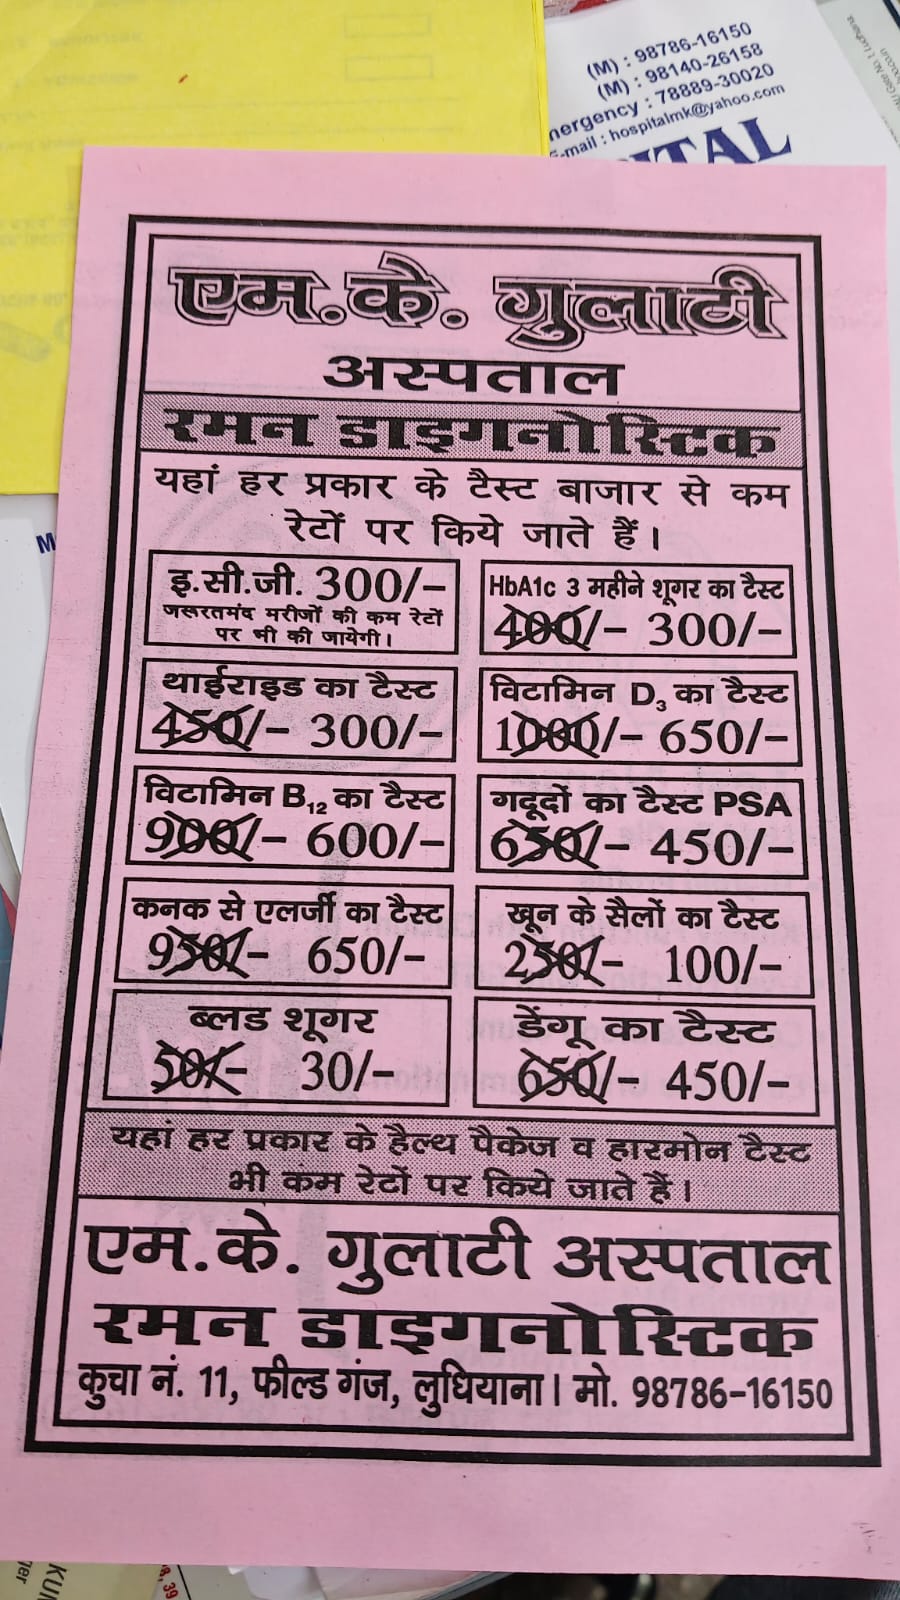 (M) : 98786-16150
(M) : 98140-26158
mergency : 78889-30020
E-mail : hospitalmk@yahoo.com
एम.के. गुलाटी
अस्पताल
रमन डाइगनोस्टिक
यहां हर प्रकार के टैस्ट बाजार से कम
रेटों पर किये जाते हैं।
इ.सी.जी. 300/-
जरूरतमंद मरीजों की कम रेटों
पर भी की जायेगी।
HbA1c 3 महीने शूगर का टैस्ट
400/- 300/-
थाईराइड का टैस्ट
450/- 300/-
विटामिन D3 का टैस्ट
1000/- 650/-
विटामिन B12 का टैस्ट
900/- 600/-
गदूदों का टैस्ट PSA
650/- 450/-
कनक से एलर्जी का टैस्ट
950/- 650/-
खून के सैलों का टैस्ट
250/- 100/-
ब्लड शूगर
50/- 30/-
डेंगू का टैस्ट
650/- 450/-
यहां हर प्रकार के हैल्थ पैकेज व हारमोन टैस्ट
भी कम रेटों पर किये जाते हैं।
एम.के. गुलाटी अस्पताल
रमन डाइगनोस्टिक
कुचा नं. 11, फील्ड गंज, लुधियाना। मो. 98786-16150